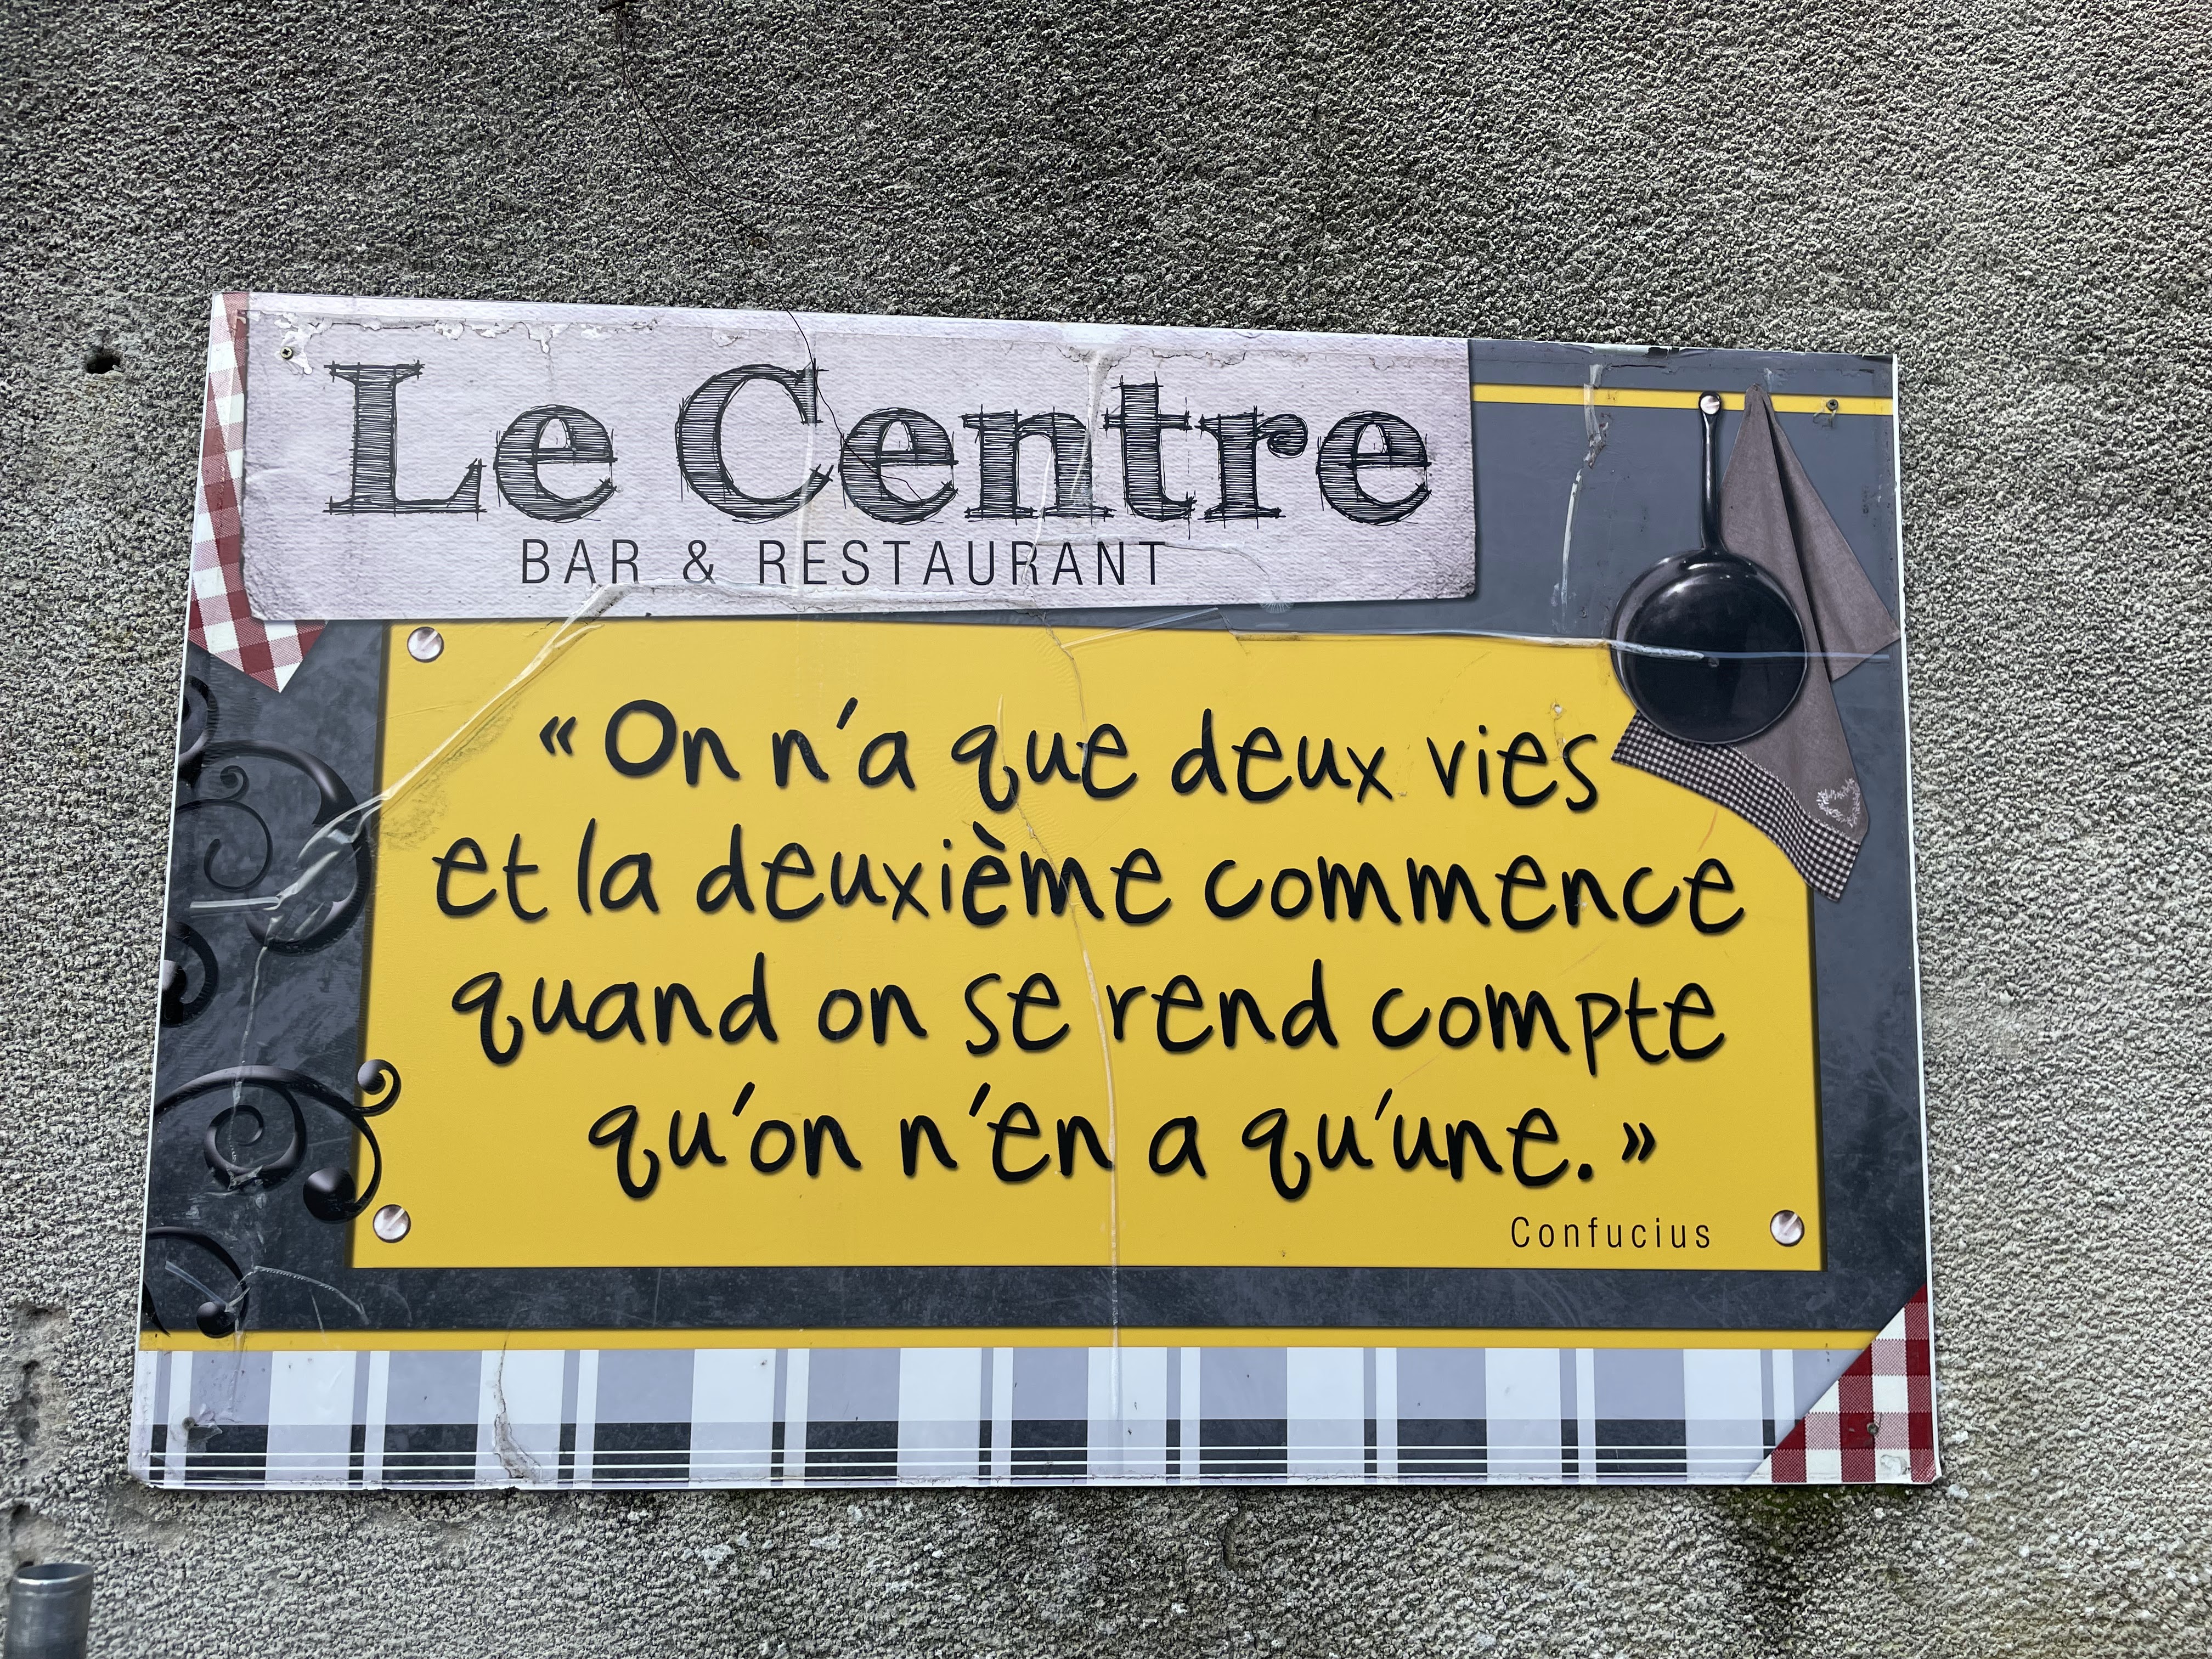 Le Centre
BAR & RESTAURANT
« On n'a que deux vies
et la deuxième commence
quand on se rend compte
qu'on n'en a qu'une. »
Confucius